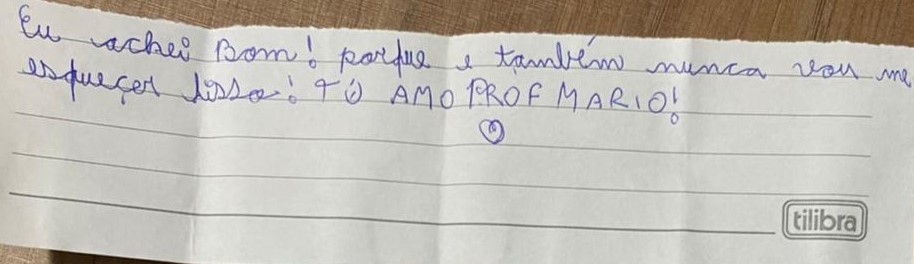 Eu achei Bom! porque e também nunca vou me
esqueçer disso! TÔ AMO PROF MARIO!
tilibra